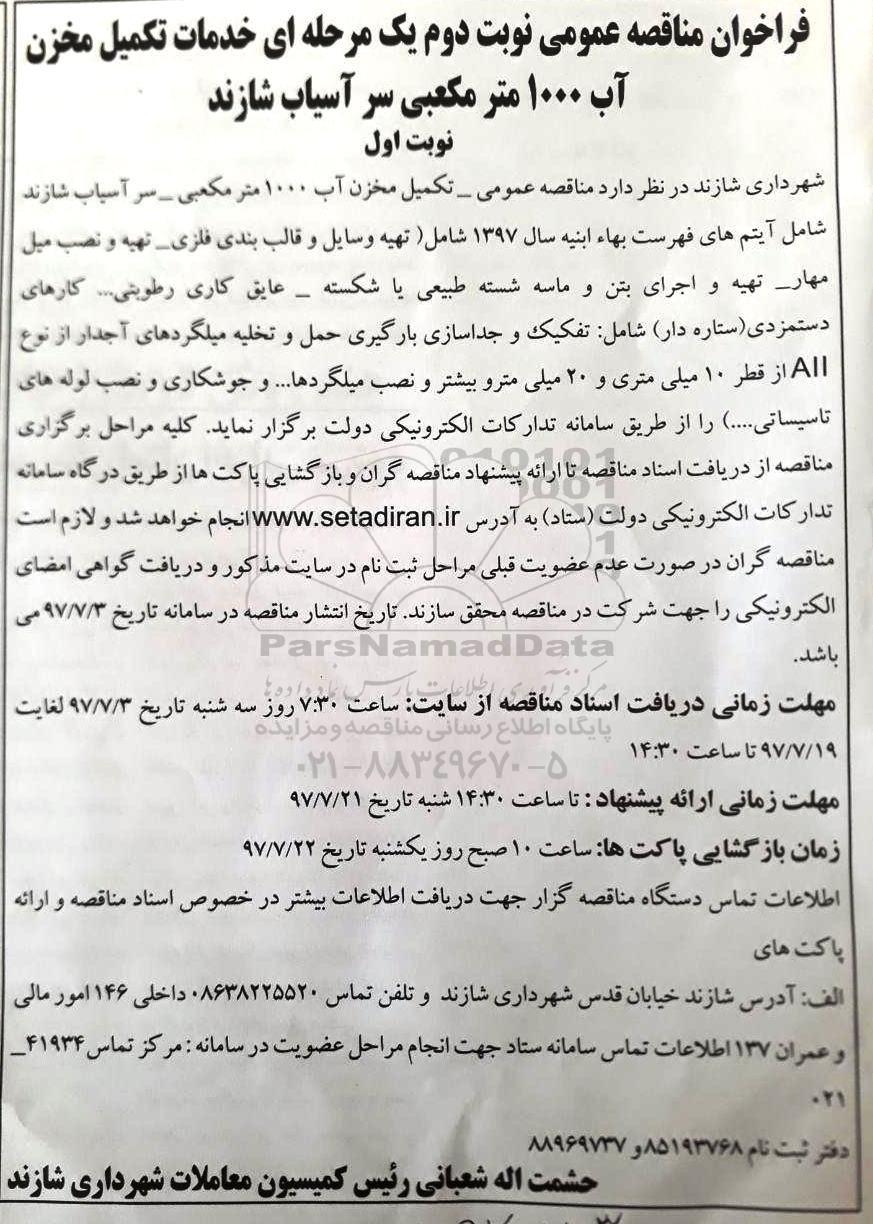 فراخوان مناقصه عمومی نوبت دوم یک مرحله ای خدمات تکمیل مخزن
آب ۱۰۰۰ متر مکعبی سر آسیاب شازند
نوبت اول
شهرداری شازند در نظر دارد مناقصه عمومی _ تکمیل مخزن آب ۱۰۰۰ متر مکعبی _ سر آسیاب شازند
شامل آیتم های فهرست بهاء ابنیه سال ۱۳۹۷ شامل( تهیه وسایل و قالب بندی فلزی_ تهیه و نصب میل
مهار_ تهیه و اجرای بتن و ماسه شسته طبیعی یا شکسته _ عایق کاری رطوبتی... کارهای
دستمزدی(ستاره دار) شامل: تفکیک و جداسازی بارگیری حمل و تخلیه میلگردهای آجدار از نوع
AII از قطر ۱۰ میلی متری و ۲۰ میلی مترو بیشتر و نصب میلگردها... و جوشکاری و نصب لوله های
تاسیساتی....) را از طریق سامانه تدارکات الکترونیکی دولت برگزار نماید. کلیه مراحل برگزاری
مناقصه از دریافت اسناد مناقصه تا ارائه پیشنهاد مناقصه گران و بازگشایی پاکت ها از طریق درگاه سامانه
تدارکات الکترونیکی دولت (ستاد) به آدرس www.setadiran.ir انجام خواهد شد و لازم است
مناقصه گران در صورت عدم عضویت قبلی مراحل ثبت نام در سایت مذکور و دریافت گواهی امضای
الکترونیکی را جهت شرکت در مناقصه محقق سازند. تاریخ انتشار مناقصه در سامانه تاریخ ۹۷/۷/۳ می
باشد.
ParsNamadData
مرکز فرآوری اطلاعات پارس نماد داده ها
مهلت زمانی دریافت اسناد مناقصه از سایت: ساعت ۷:۳۰ روز سه شنبه تاریخ ۹۷/۷/۳ لغایت
پایگاه اطلاع رسانی مناقصه و مزایده
۹۷/۷/۱۹ تا ساعت ۱۴:۳۰
۰۲۱-۸۸۳۴۹۶۷۰-۵
مهلت زمانی ارائه پیشنهاد : تا ساعت ۱۴:۳۰ شنبه تاریخ ۹۷/۷/۲۱
زمان بازگشایی پاکت ها: ساعت ۱۰ صبح روز یکشنبه تاریخ ۹۷/۷/۲۲
اطلاعات تماس دستگاه مناقصه گزار جهت دریافت اطلاعات بیشتر در خصوص اسناد مناقصه و ارائه
پاکت های
الف: آدرس شازند خیابان قدس شهرداری شازند و تلفن تماس ۰۸۶۳۸۲۲۵۵۲۰ داخلی ۱۴۶ امور مالی
و عمران ۱۳۷ اطلاعات تماس سامانه ستاد جهت انجام مراحل عضویت در سامانه : مرکز تماس ۴۱۹۳۴_
۰۲۱
دفتر ثبت نام ۸۵۱۹۳۷۶۸و ۸۸۹۶۹۷۳۷
حشمت اله شعبانی رئیس کمیسیون معاملات شهرداری شازند